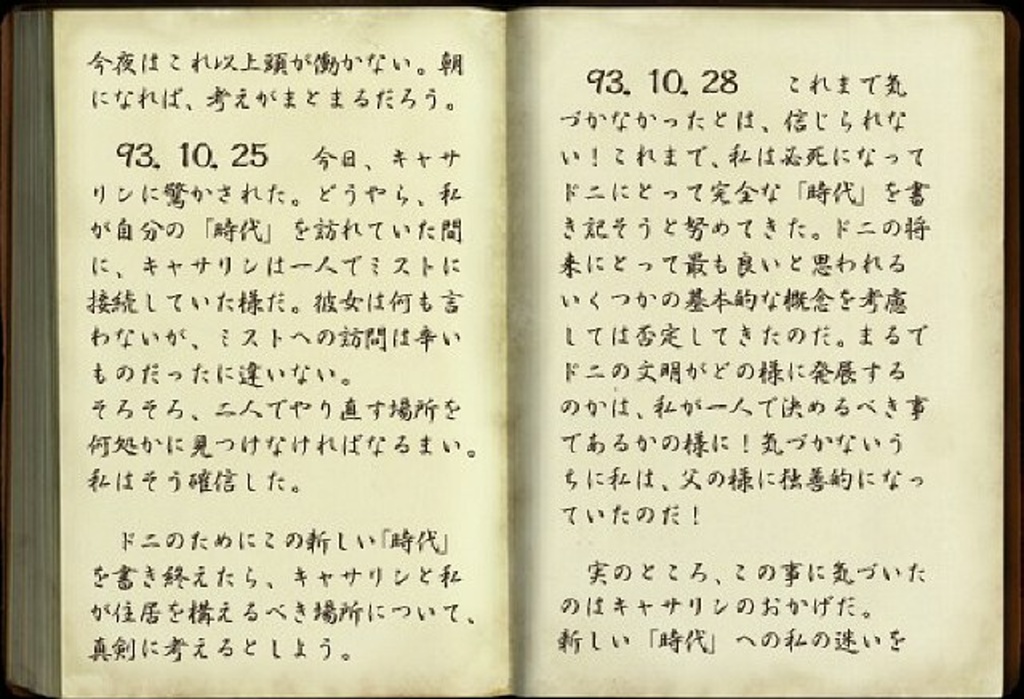 今夜はこれ以上頭が働かない。朝
になれば、考えがまとまるだろう。
93. 10. 25 今日、キャサ
リンに驚かされた。どうやら、私
が自分の「時代」を訪れていた間
に、キャサリンは一人でミストに
接続していた様だ。彼女は何も言
わないが、ミストへの訪問は辛い
ものだったに違いない。
そろそろ、二人でやり直す場所を
何処かに見つけなければなるまい。
私はそう確信した。
ドニのためにこの新しい「時代」
を書き終えたら、キャサリンと私
が住居を構えるべき場所について、
真剣に考えるとしよう。
93. 10. 28 これまで気
づかなかったとは、信じられな
い！これまで、私は必死になって
ドニにとって完全な「時代」を書
き記そうと努めてきた。ドニの将
来にとって最も良いと思われる
いくつかの基本的な概念を考慮
しては否定してきたのだ。まるで
ドニの文明がどの様に発展する
のかは、私が一人で決めるべき事
であるかの様に！気づかないう
ちに私は、父の様に独善的になっ
ていたのだ！
実のところ、この事に気づいた
のはキャサリンのおかげだ。
新しい「時代」への私の迷いを